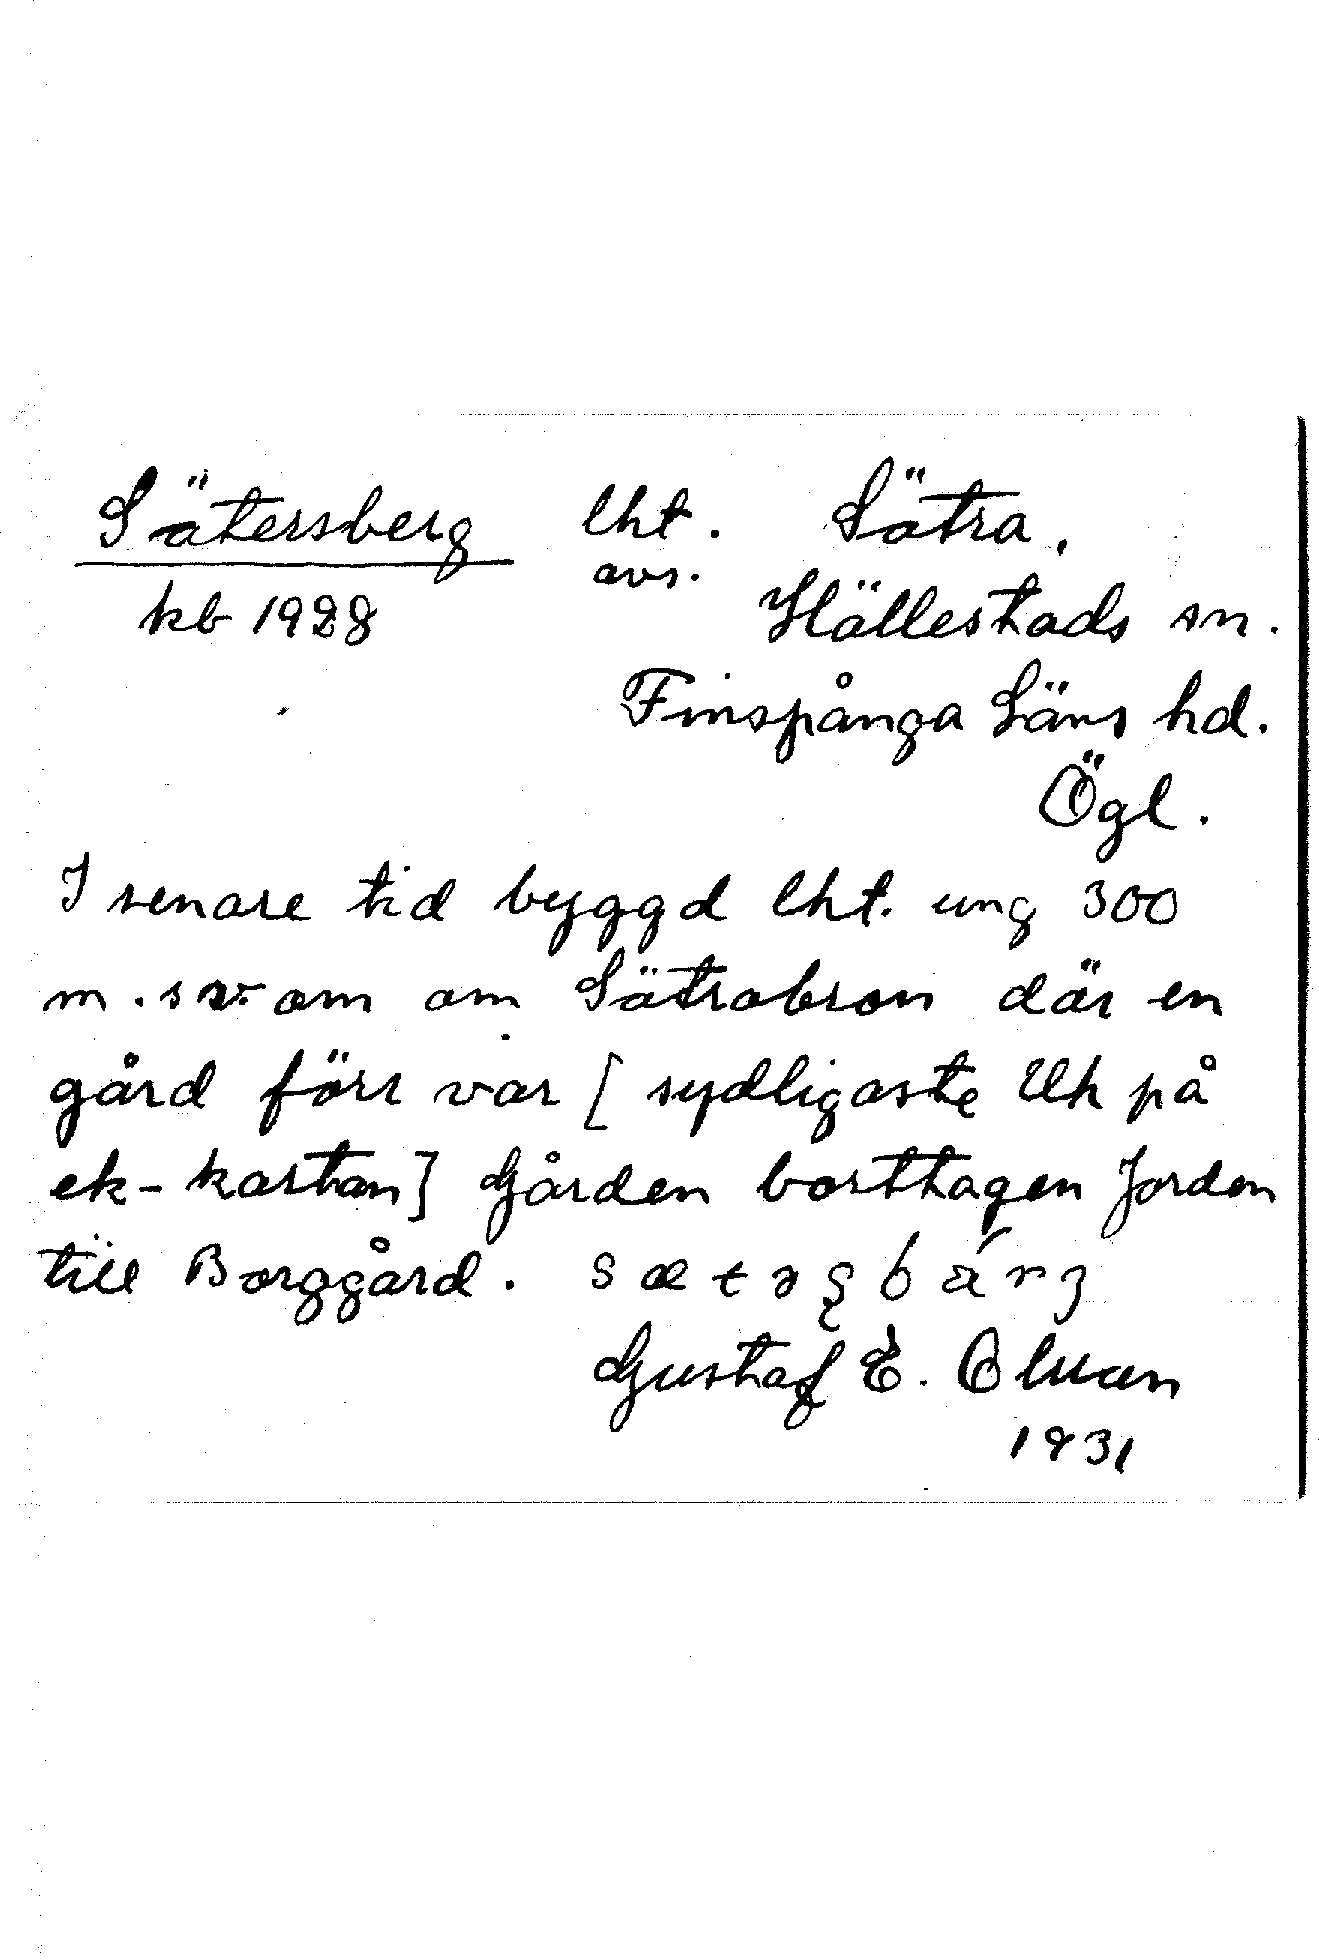 Sätersberg lht. Sätra.
kb 1928 avs. Hällestads sn.
Finspånga Läns hd.
Ögl.
I senare tid byggd lht. ung 300
m. sv. om om Sätrabron där en
gård förr var [sydligaste Uh på
ek-kartan] Gården borttagen Jorden
till Borggård. s æ t ə ʂ b á r ʒ
Gustaf E. Olsson
1931